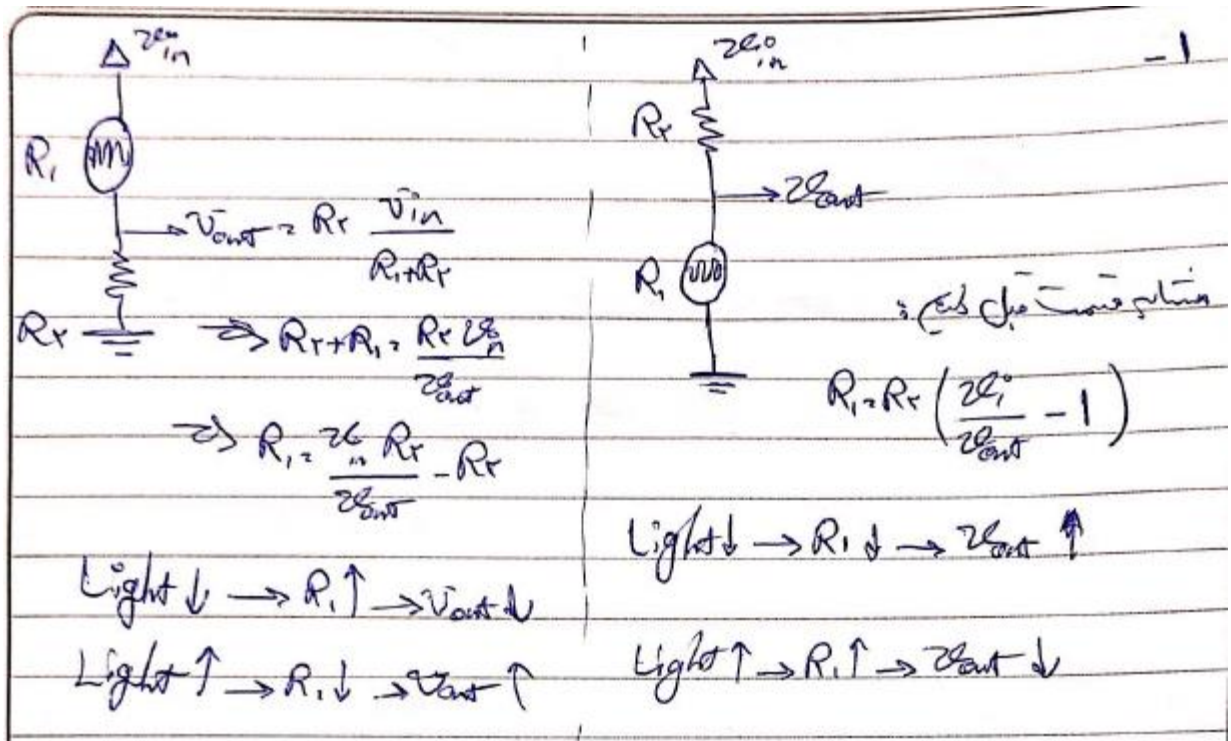 -1
V_in
R_1
V_out = R_۲ V_in / (R_1+R_۲)
R_۲
=> R_۲+R_1 = R_۲ V_in / V_out
=> R_1 = V_in R_۲ / V_out - R_۲
Light↓ → R_1↑ → V_out↓
Light↑ → R_1↓ → V_out↑
V_in
R_۲
→ V_out
R_1
قسمت قبل :
R_1 = R_۲ (V_i / V_out - 1)
Light↓ → R_1↓ → V_out↑
Light↑ → R_1↑ → V_out↓